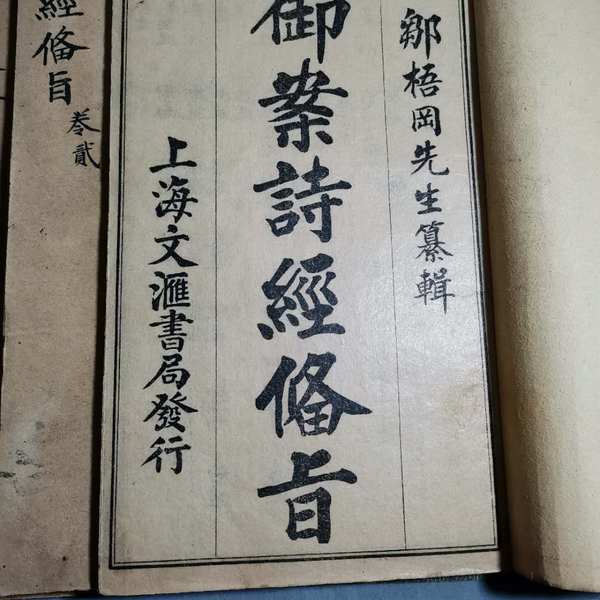 鄒梧岡先生纂輯
御案詩經俻旨
上海文滙書局發行
經俻旨
卷貳